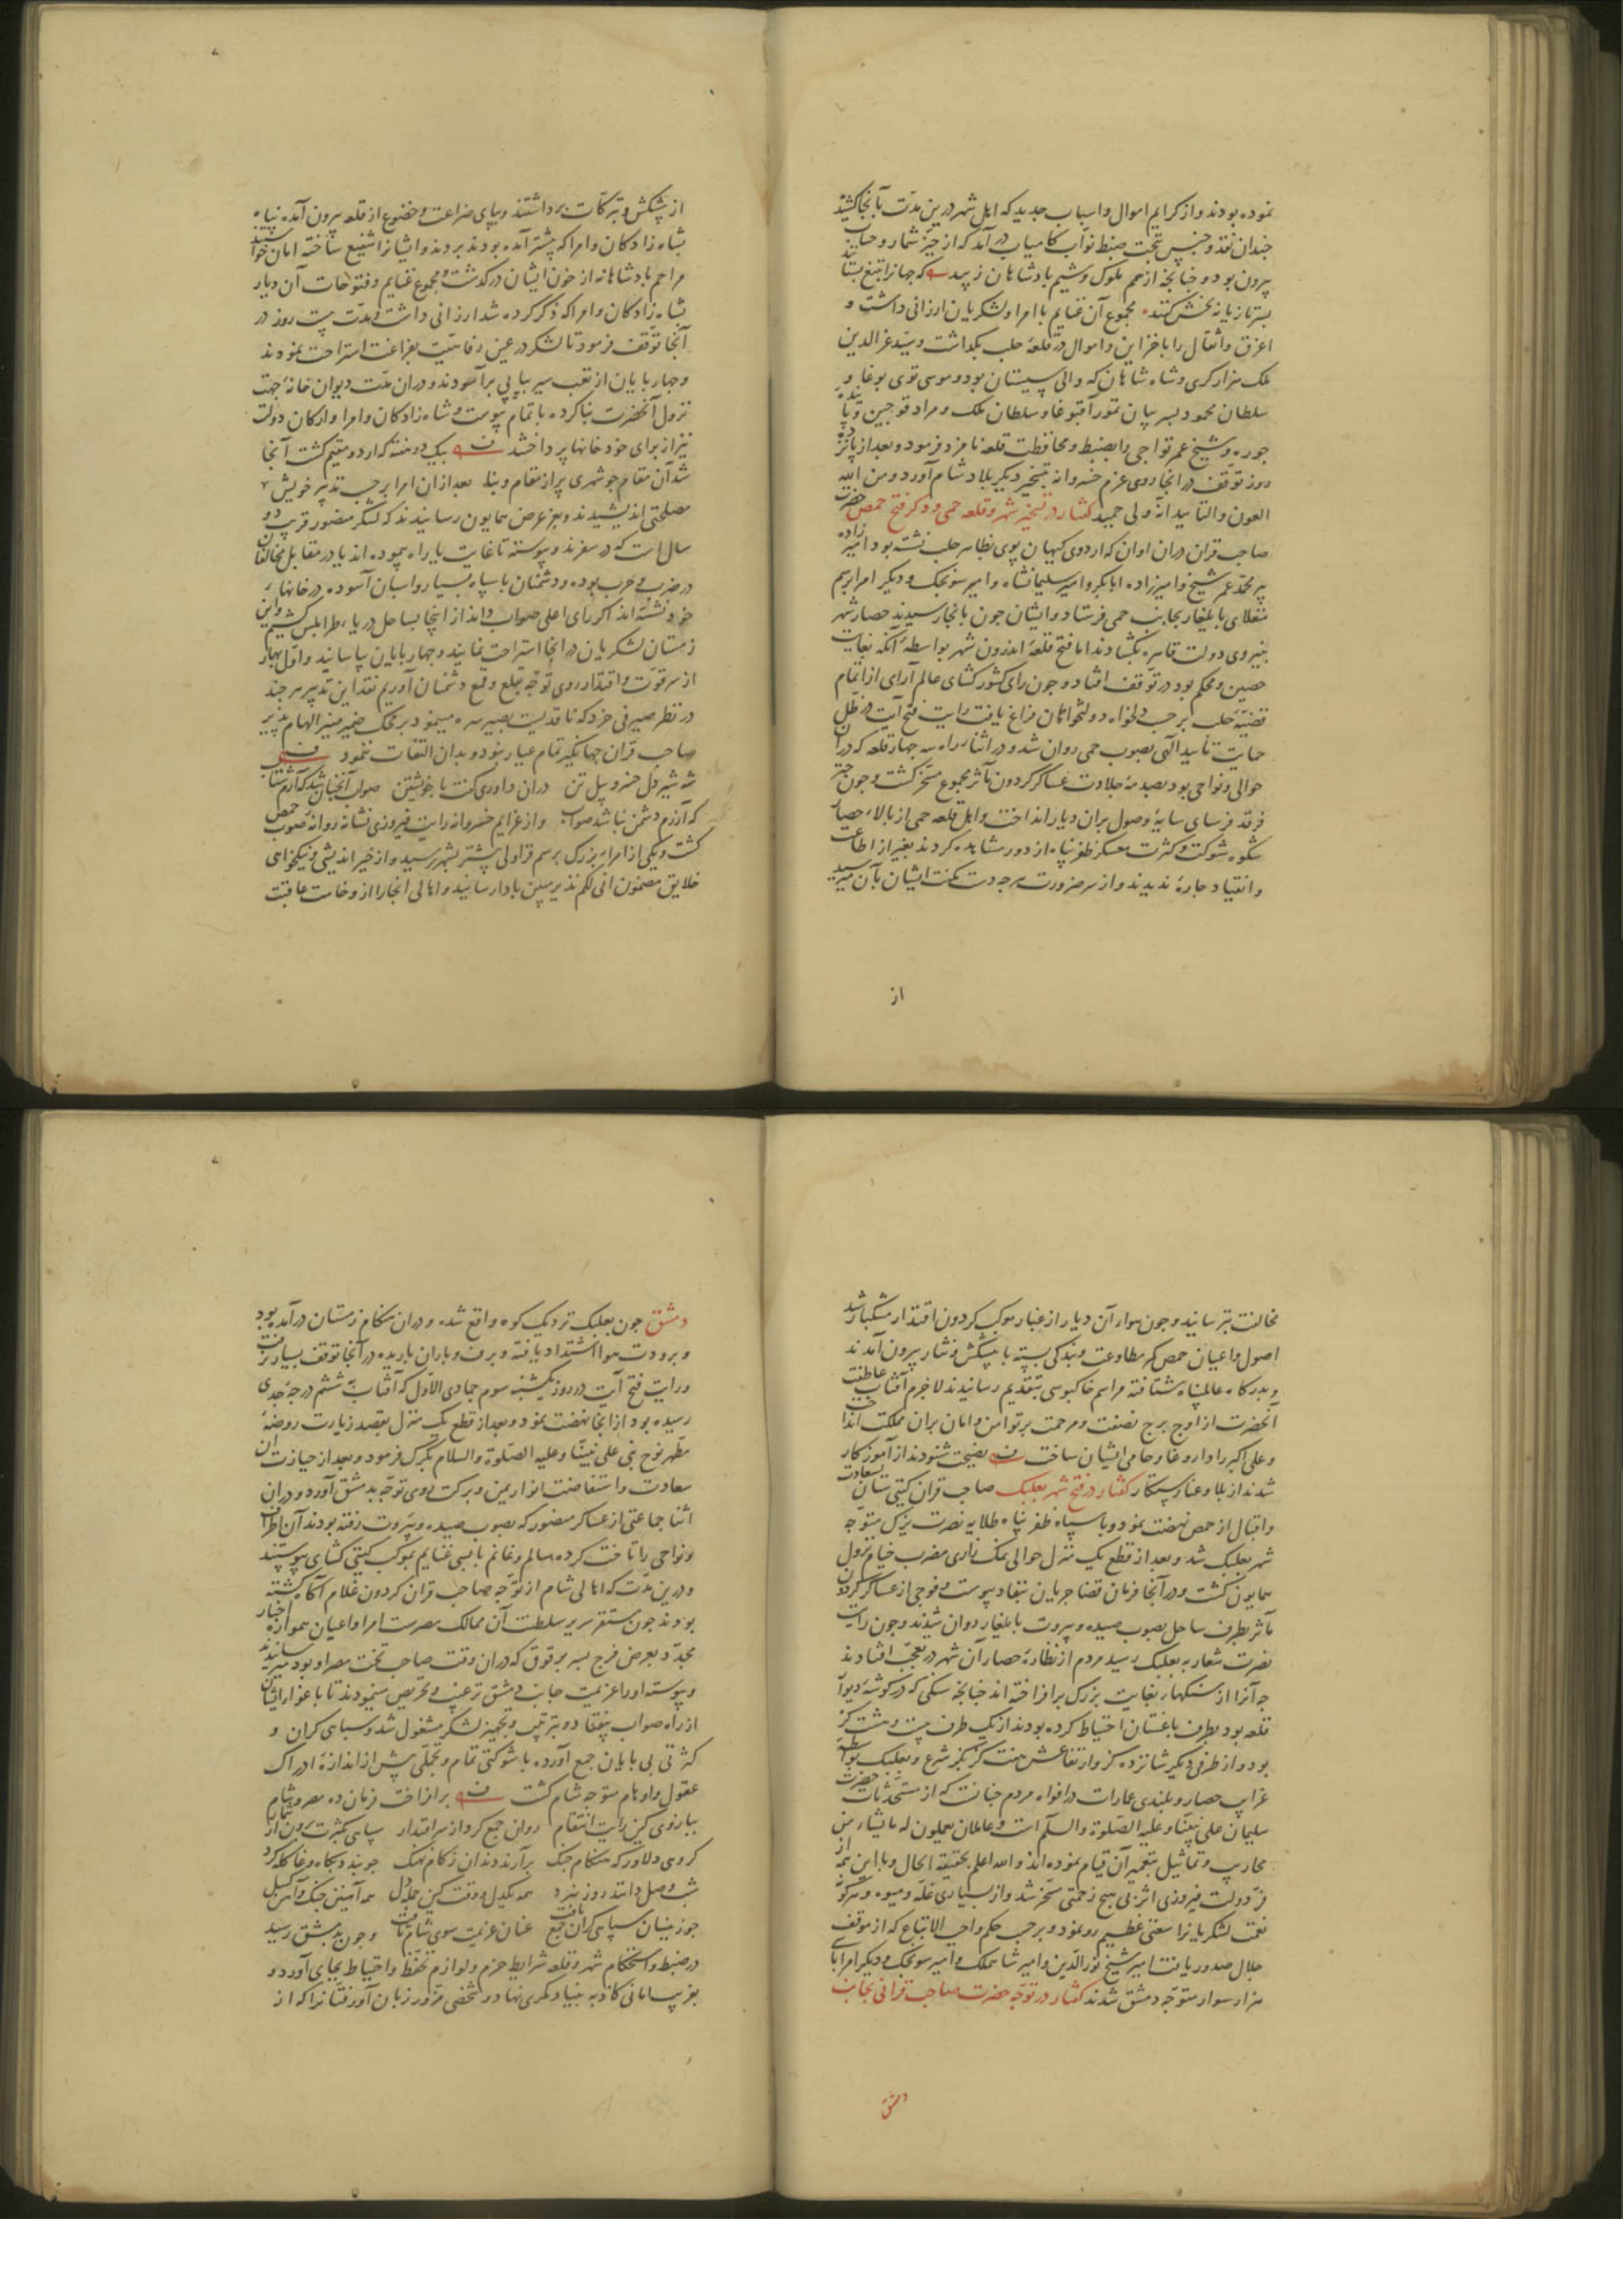 نموده بودند و از کرایم اموال و اسباب جدید که اهل شهر درین مدت بآنجا کشیده
چندان نقد و جنس تحت ضبط نواب کامیاب در آمد که از حیز شمار و حساب
بیرون بود و چنانچه از همم ملوک و شیم پادشاهان زیبد که جهانرا بتیغ بستانند
بسر تازیانه بخش کنند مجموع آن غنایم بامرا و لشکریان ارزانی داشت و
اغرق و اثقال را با خزاین و اموال در قلعهٔ حلب بگذاشت و سید عزالدین
ملک هزارکری و شاه شاهان که والی سیستان بود و موسی توی بوغا و
سلطان محمود بسر بیان تمور آقبوغا و سلطان ملک و مراد قوجین و
جوره و شیخ عمر تواجی را بضبط و محافظت قلعه نامزد فرمود و بعد از پانزده
روز توقف در آنجا روی عزم خسروانه بتسخیر دیگر بلاد شام آورد و من الله
العون و التایید انه ولی حمید گفتار در تسخیر شهر و قلعه حمی و ذکر فتح حمص حضرت
صاحب قران دران اوان که اردوی کیهان پوی بظاهر حلب نشسته بود امیرزاده
پیر محمد عمر شیخ و امیرزاده ابابکر و امیر سلیمانشاه و امیر سونجک و دیگر امرا برسم
منغلای بایلغار بجانب حمی فرستاد و ایشان چون بآنجا رسیدند حصار شهر
بنیروی دولت قاهره بگشادند اما فتح قلعهٔ اندرون شهر بواسطهٔ آنکه بغایت
حصین و محکم بود در توقف افتاد و چون رای کشورکشای عالم آرای از اتمام
قضیهٔ حلب بر حسب دلخواه دولتخواهان فراغ یافت رایت فتح آیت در ظل
حمایت تایید الهی بصوب حمی روان شد و در اثناء راه سه چهار قلعه که در آن
حوالی و نواحی بود بصدمهٔ جلادت عساکر گردون مآثر مجموع مسخر گشت و چون چتر
فرقد فرسای سایهٔ وصول بران دیار انداخت و اهل قلعه حمی از بالاء حصار
شکوه شوکت و کثرت معسکر ظفر پناه از دور مشاهده کردند بغیر از اطاعت
و انقیاد چارهٔ ندیدند و از سر ضرورت هر چه دست مکنت ایشان بآن میرسید
از
از پیشکش و تبرکات برداشتند و بپای ضراعت و خضوع از قلعه بیرون آمده پناه
بشاه زادگان و امرا که پیشتر آمده بودند بردند و ایشانرا شفیع ساخته امان خواستند
مراحم پادشاهانه از خون ایشان درگذشت و مجموع غنایم و فتوحات آن دیار
بشاه زادگان و امرا که ذکر کرده شد ارزانی داشت و مدت بیست روز در
آنجا توقف فرمود تا لشکر در عین رفاهیت بفراغت استراحت نمودند
و چهارپایان از تعب سیر پیاپی برآسودند و دران مدت دیوان خانهٔ جهت
نزول آنحضرت بنا کرده باتمام پیوست و شاه زادگان و امرا و ارکان دولت
نیز از برای خود خانها پرداختند بیک دو هفته که اردو مقیم گشت آنجا
شد آن مقام چو شهری پر از مقام و بنا بعد ازان امرا بر حسب تدبیر خویش
مصلحتی اندیشیدند و بعز عرض همایون رسانیدند که لشکر منصور قریب دو
سال است که در سفرند و پیوسته تا غایت یا راه پیموده اند یا در مقابل مخالفان
در ضرب و حرب بوده و دشمنان با سپاه بسیار و اسبان آسوده در خانهاء
خود نشسته اند اگر رای اعلی صواب داند از اینجا بساحل دریاء طرابلس کشیم و این
زمستان لشکریان در آنجا استراحت نمایند و چهارپایان بیاسایند و اول بهار
از سر قوت و اقتدار روی توجه بقلع و قمع دشمنان آوریم نقد این تدبیر هر چند
در نظر صیرفی خرد که ناقدیست بصیر سره مینمود بر محک ضمیر منیر الهام پذیر
صاحب قران جهانگیر تمام عیار نبود و بدان التفات ننمود
شه شیر دل خسرو پیل تن دران داوری گفت با خویشتن صواب آنچنان شد که آرم شتاب
که آرزم دشمن نباشد صواب و از عزایم خسروانه رایت فیروزی نشانه روانهٔ صوب حمص
گشت و یکی از امراء بزرگ برسم قراولی پیشتر بشهر رسید و از خیر اندیشی و نیکخواهی
خلایق مضمون انی لکم نذیر مبین بادا رسانید و اهالی آنجا را از وخامت عاقبت
مخالفت بترسانید و چون هوای آن دیار از غبار موکب گردون اقتدار مشکبار شد
اصول و اعیان حمص کمر مطاوعت و بندگی بسته با پیشکش و نثار بیرون آمدند
و بدرگاه عالمپناه شتافته مراسم خاکبوسی بتقدیم رسانیدند لاجرم آفتاب عاطفت
آنحضرت از اوج برج نصفت و مرحمت پرتو امن و امان بران مملکت انداخت
و علی اکبر را داروغا و حامی ایشان ساخت نصیحت شنودند از آموزگار
شدند از بلا و عنا رستگار گفتار در فتح شهر بعلبک صاحب قران گیتی ستان بسعادت
و اقبال از حمص نهضت نمود و با سپاه ظفر پناه طلایه نصرت یزک متوجه
شهر بعلبک شد و بعد از قطع یک منزل حوالی نمک زاری مضرب خیام نزول
همایون گشت و در آنجا فرمان قضا جریان بنفاد پیوست و فوجی از عساکر گردون
مآثر بطرف ساحل بصوب صیده و بیروت بایلغار روان شدند و چون رایت
نصرت شعار به بعلبک رسید مردم از نظارهٔ حصار آن شهر در تعجب افتادند
چه آنرا از سنگهاء بغایت بزرگ برافراخته اند چنانچه سنگی که در گوشهٔ دیوار
قلعه بود بطرف باغستان احتیاط کرده بودند از یک طرف بیست و هشت گز
بود و از طرفی دیگر شانزده گز و ارتفاعش هفت گز بگز شرع و بعلبک بواسطهٔ
غرایب حصار و بلندی عمارات در افواه مردم چنانست که از مستحدثات حضرت
سلیمان علی نبینا و علیه الصلوة و السلم است و عاملان یعملون له ما یشاء من
محاریب و تماثیل بتعمیر آن قیام نموده اند و الله اعلم بحقیقة الحال و با این همه از
فر دولت فیروزی اثر بی هیچ زحمتی مسخر شد و از بسیاری غله و میوه و هر گونه
نعمت لشکریانرا سعتی عظیم رو نمود و بر حسب حکم واجب الاتباع که از موقف
جلال صدور یافت امیر شیخ نورالدین و امیر شاهملک و امیر سونجک و دیگر امرا با سی
هزار سوار متوجه دمشق شدند گفتار در توجه حضرت صاحب قرانی بجانب
دمشق
دمشق چون بعلبک نزدیک کوه واقع شده و دران هنگام زمستان درآمده بود
و برودت هوا اشتداد یافته و برف و باران باریده در آنجا توقف بسیار نرفت
و رایت فتح آیت در روز یکشنبه سوم جمادی الاول که آفتاب به ششم درجهٔ جدی
رسیده بود از آنجا نهضت نمود و بعد از قطع یک منزل بقصد زیارت روضهٔ
مطهر نوح نبی علی نبینا و علیه الصلوة و السلام تبرک فرمود و بعد از حیازت آن
سعادت و استفاضت انوار یمن و برکت روی توجه بدمشق آورد و دران
اثنا جماعتی از عساکر منصور که بصوب صیده و بیروت رفته بودند آن اطراف
و نواحی را تاخت کرده سالم و غانم با بسی غنایم بموکب گیتی گشای پیوستند
و درین مدت که اهالی شام از توجه صاحب قران گردون غلام آگاه گشته
بودند چون مستقر سریر سلطنت آن ممالک مصرست امرا و اعیان همواره اخبار
مجدد بعرض فرج بسر برقوق که دران وقت صاحب تخت مصر او بود میرسانیدند
و پیوسته او را عزیمت جانب دمشق ترغیب و تحریص مینمودند تا باغراء ایشان
از راه صواب بیفتاد و بترتیب و تجهیز لشکر مشغول شد و سپاهی گران و
کثرتی بی پایان جمع آورده با شوکتی تمام و تجملی بیش از اندازهٔ ادراک
عقول و اوهام متوجه شام گشت برافراخت فرمان ده مصر و شام
ببازوی کین رایت انتقام روان جمع کرد از سر اقتدار سپاهی بکثرت برون از شمار
گروهی دلاور که هنگام جنگ برآرند دندان ز کام نهنگ چو بند و بگاه وغا گله کرد
شب وصل دانند روز نبرد همه یکدل و وقت کین جمله دل همه آهنین چنگ و آهن گسل
چو زینسان سپاهی گران جمع یافت عنان عزیمت سوی شام تافت و چون بدمشق رسید
در ضبط و استحکام شهر و قلعه شرایط حزم و لوازم تحفظ و احتیاط بجای آورد و
بفریب امانی کاذبه بنیاد مکری نهاد و شخصی مزور زبان آور فتانرا که از